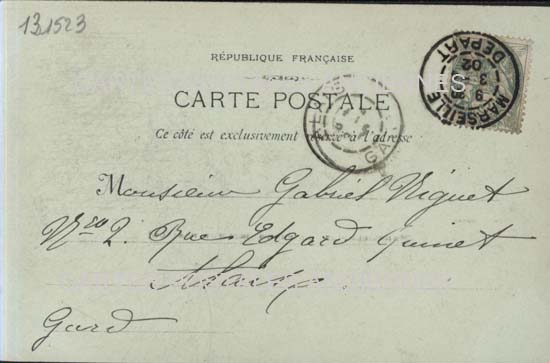 131523
RÉPUBLIQUE FRANÇAISE
CARTE POSTALE
Ce côté est exclusivement réservé à l'adresse
MARSEILLE
DÉPART
9
3
02
GA
Monsieur Gabriel Viguet
Nro 2. Rue Edgard Quinet
Gard